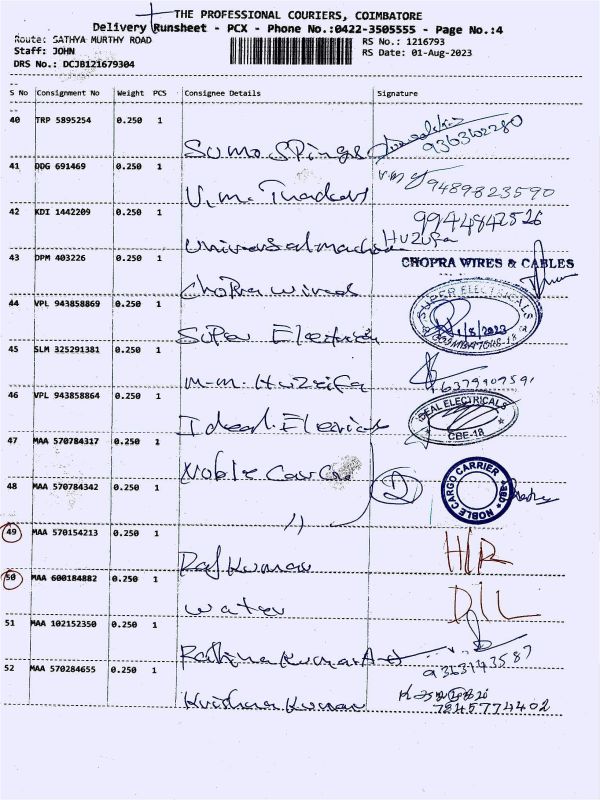 THE PROFESSIONAL COURIERS, COIMBATORE
Delivery Runsheet - PCX - Phone No.:0422-3505555 - Page No.:4
Route: SATHYA MURTHY ROAD
RS No.: 1216793
Staff: JOHN
RS Date: 01-Aug-2023
DRS No.: DCJB121679304
S No Consignment No Weight PCS Consignee Details Signature
40 TRP 5895254 0.250 1
Sumo Spings 9363602280
41 DDG 691469 0.250 1
V.m. Traders 9489823590
42 KDI 1442209 0.250 1
9944842526
Universal Huzufa
43 DPM 403226 0.250 1
CHOPRA WIRES & CABLES
Chopra wires
44 VPL 943858869 0.250 1
SUPER ELECTRICALS
1/8/2023
COIMBATORE-18
Super Electrical
45 SLM 325291381 0.250 1
m.m. Huzeifa
46 VPL 943858864 0.250 1
IDEAL ELECTRICALS
CBE-18
Ideal Electrical
47 MAA 570784317 0.250 1
Noble Cargo
NOBLE CARGO CARRIER
48 MAA 570784342 0.250 1
2
"
49 MAA 570154213 0.250 1
H/R
Raj Kumar
50 MAA 600184882 0.250 1
D/L
water
51 MAA 102152350 0.250 1
Rathina Kumar 9363143587
52 MAA 570284655 0.250 1
Krishna Kumar 7845774402